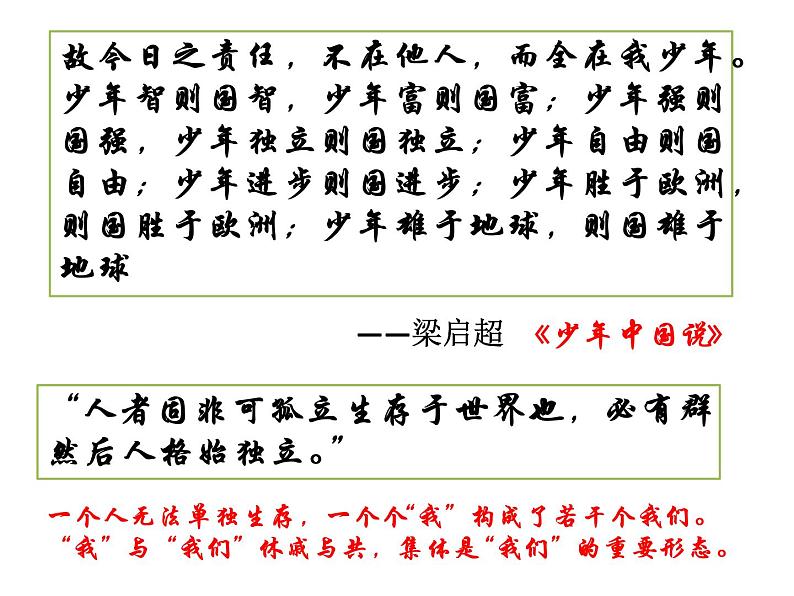 故今日之责任，不在他人，而全在我少年。
少年智则国智，少年富则国富；少年强则
国强，少年独立则国独立；少年自由则国
自由；少年进步则国进步；少年胜于欧洲，
则国胜于欧洲；少年雄于地球，则国雄于
地球
——梁启超 《少年中国说》
“人者固非可孤立生存于世界也，必有群
然后人格始独立。”
一个人无法单独生存，一个个“我”构成了若干个我们。
“我”与“我们”休戚与共，集体是“我们”的重要形态。